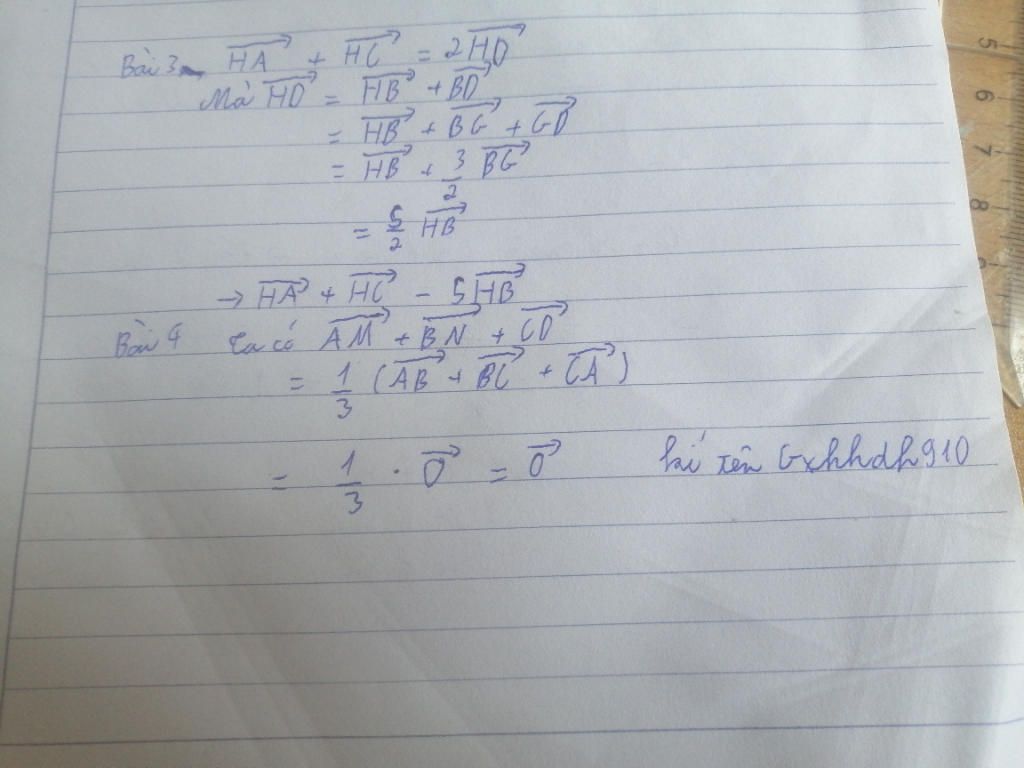 Bài 3 HA + HC = 2HD
Mà HD = HB + BD
= HB + BG + GD
= HB + 3/2 BG
= 5/2 HB
→ HA + HC - 5HB
Bài 4 Ta có AM + BN + CD
= 1/3 (AB + BC + CA)
= 1/3 . 0 = 0 kí tên Gxhhdh910
5
6
7
8
9